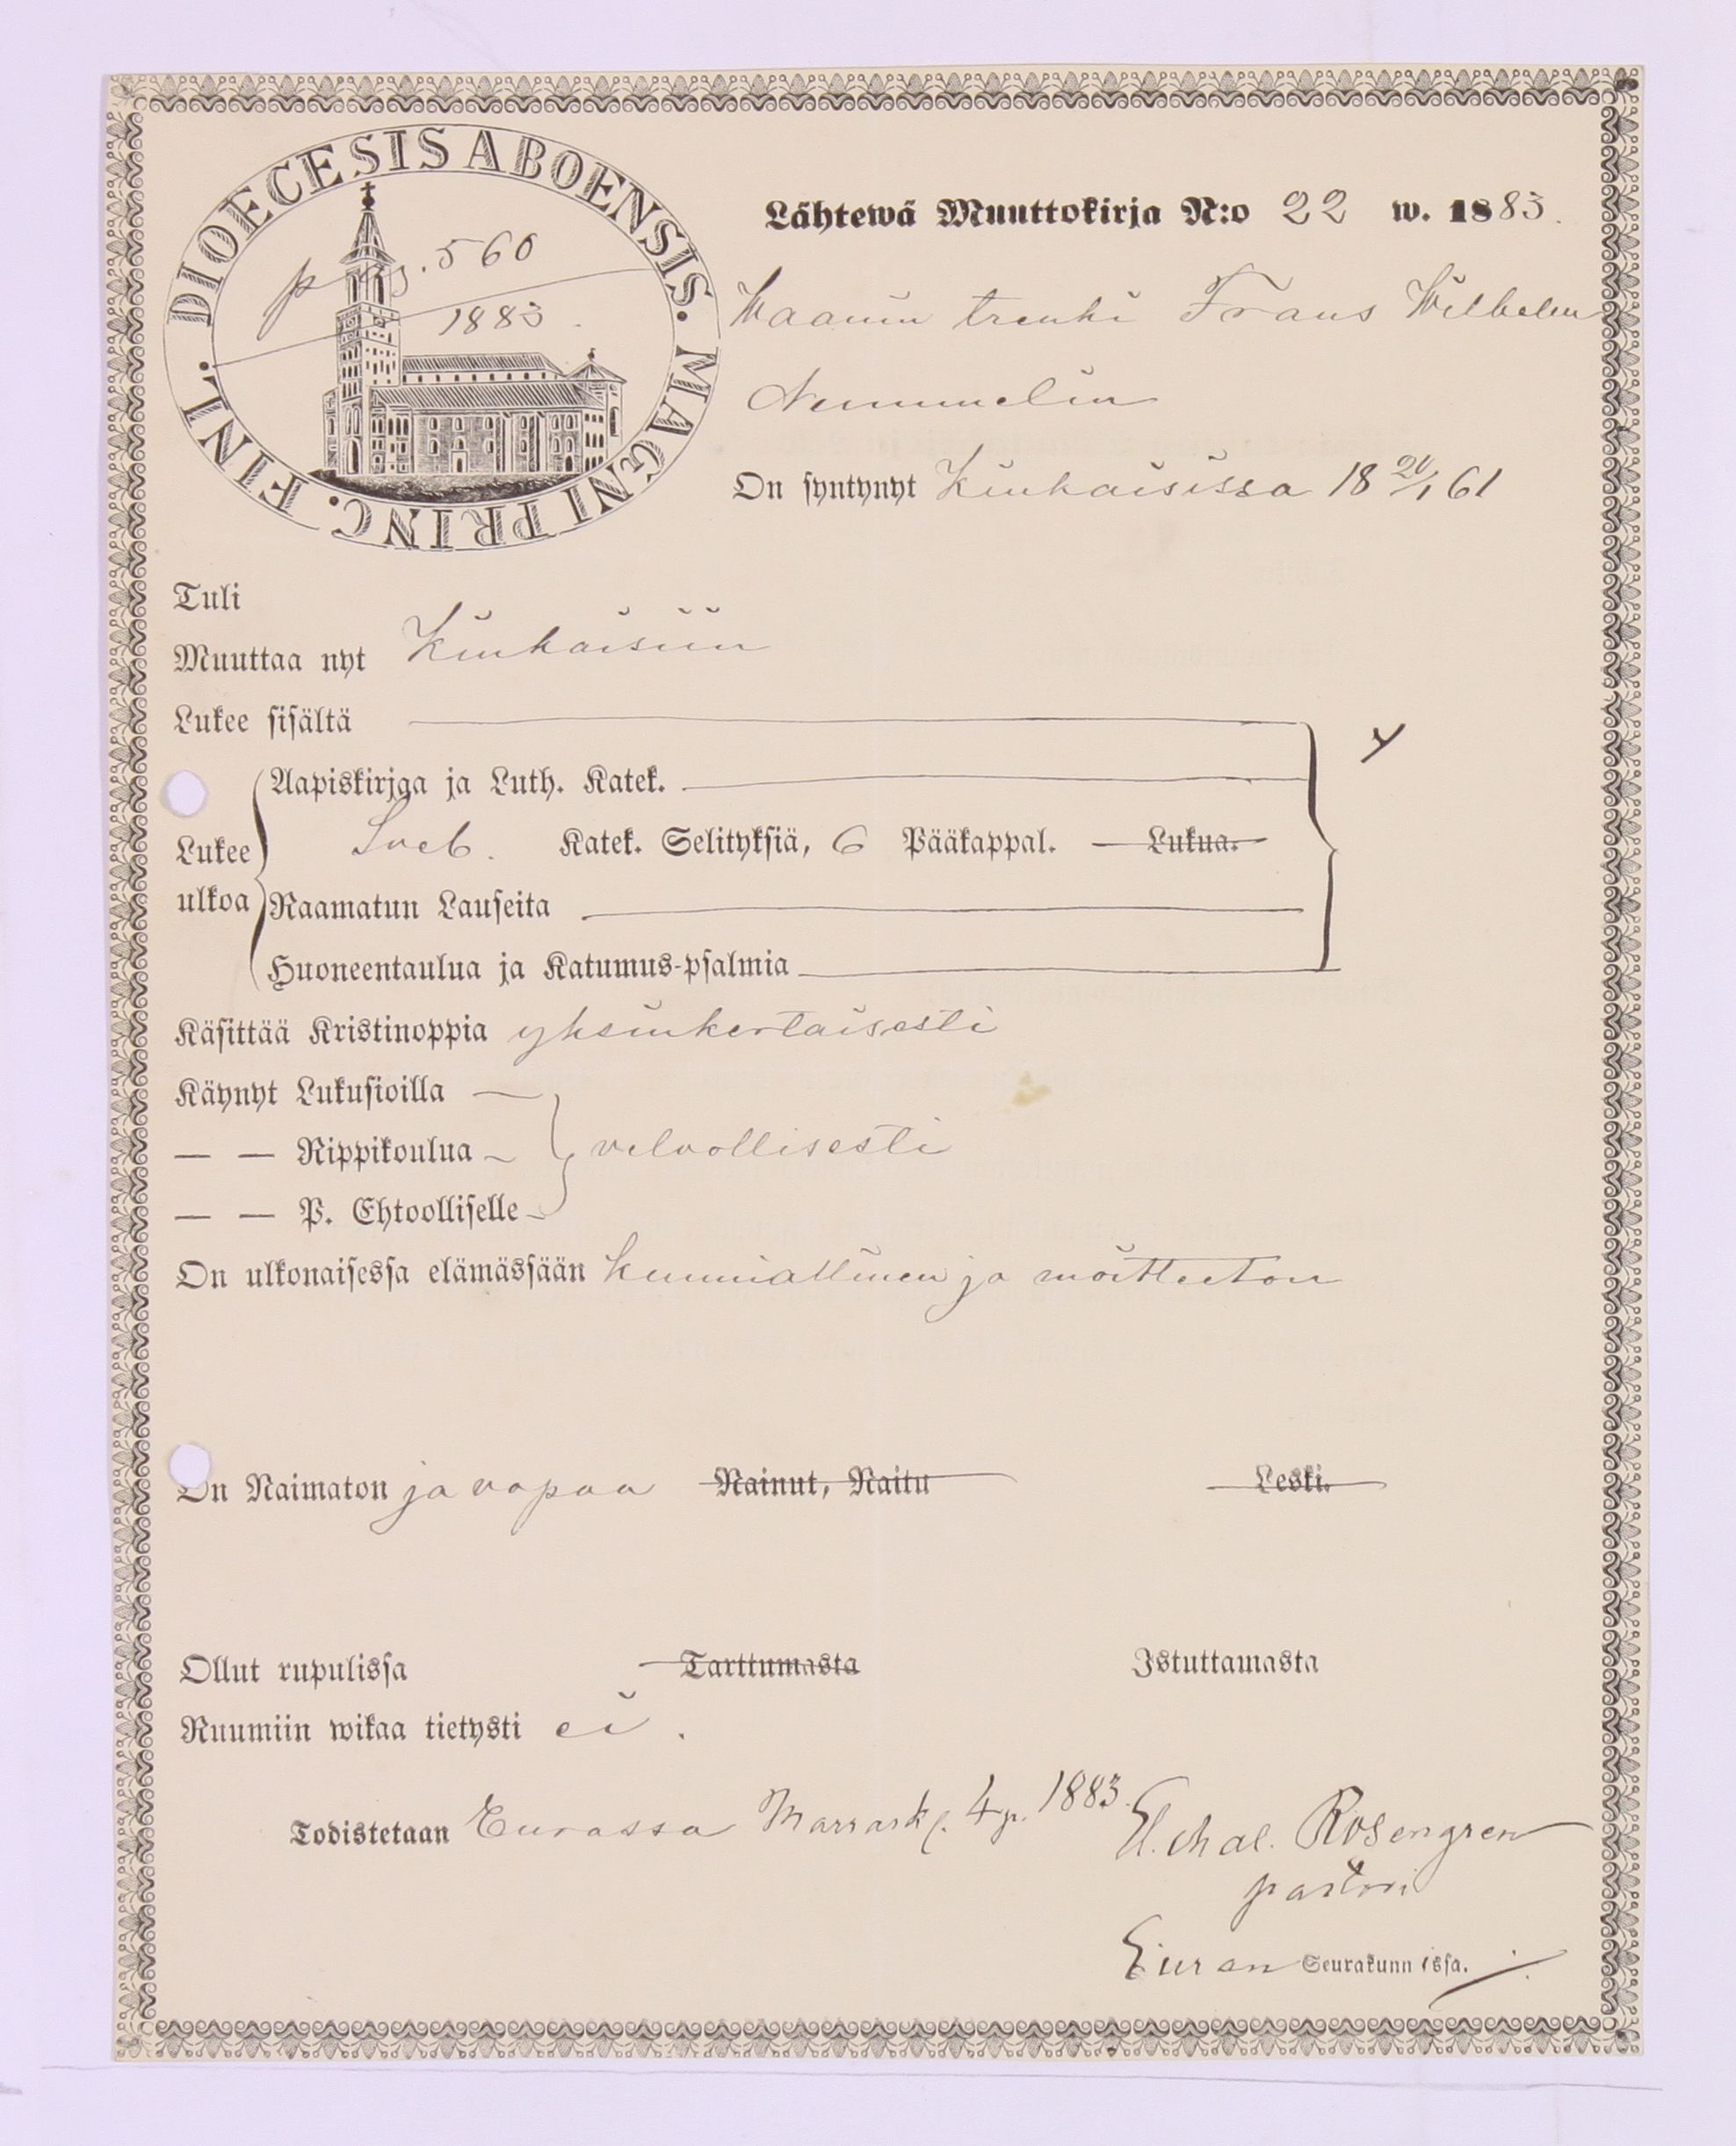 DIOECESIS ABOENSIS. MAGNI PRINC. FINL.
pag. 560
1883.
Lähtewä Muuttokirja N:o 22 w. 1883.
trenki Frans Wilhelm
Nummelin
On syntynyt Kiukaisissa 18 20/1 61
Tuli
Muuttaa nyt Kiukaisiin
Lukee sisältä
Lukee ulkoa
Aapiskirjaa ja Luth. Katek.
Sveb. Katek. Selityksiä, 6 Pääkappal. Lukua.
Raamatun Lauseita
Huoneentaulua ja Katumus-psalmia
Käsittää Kristinoppia yksinkertaisesti
Käynyt Lukusioilla
— — Rippikoulua
velvollisesti
— — P. Ehtoolliselle
On ulkonaisessa elämässään kunniallinen ja moitteeton
On Naimaton ja vapaa Nainut, Naitu Leski.
Ollut rupulissa Tarttumasta Istuttamasta
Ruumiin wikaa tietysti ei.
Todistetaan Eurassa Marrask. 4 p. 1883.
Rosengren
pastori
Euran Seurakunnissa.